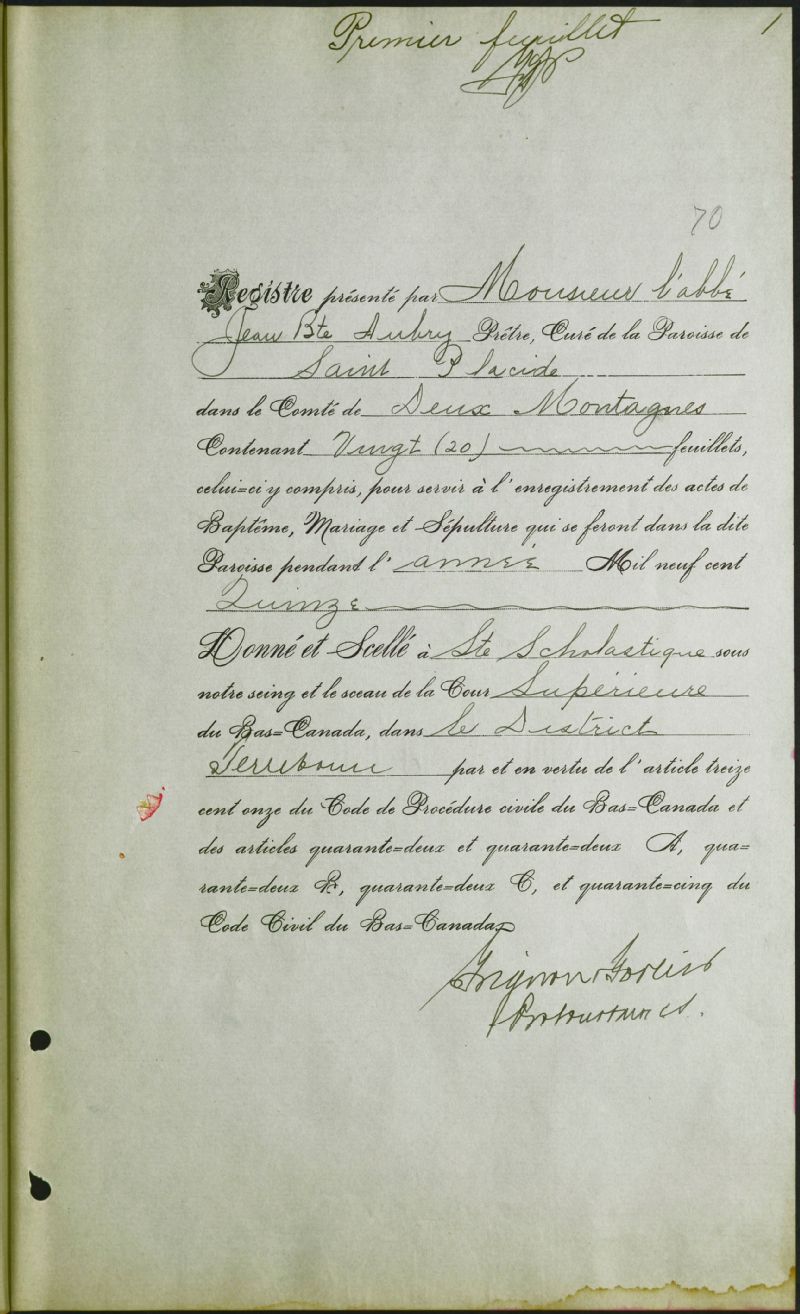 Premier feuillet
1
70
Registre présenté par Monsieur l'abbé
Jean Bte Aubry Prêtre, Curé de la Paroisse de
Saint Placide
dans le Comté de Deux Montagnes
Contenant Vingt (20) feuillets,
celui=ci y compris, pour servir à l'enregistrement des actes de
Baptême, Mariage et Sépulture qui se feront dans la dite
Paroisse pendant l'année Mil neuf cent
Quinze
Donné et Scellé à Ste Scholastique sous
notre seing et le sceau de la Cour Supérieure
du Bas=Canada, dans le District
Terrebonne par et en vertu de l'article treize
cent onze du Code de Procédure civile du Bas=Canada et
des articles quarante=deux et quarante=deux A, qua=
rante=deux B, quarante=deux C, et quarante=cinq du
Code Civil du Bas=Canada
Grignon & Fortier
Protonotaires.